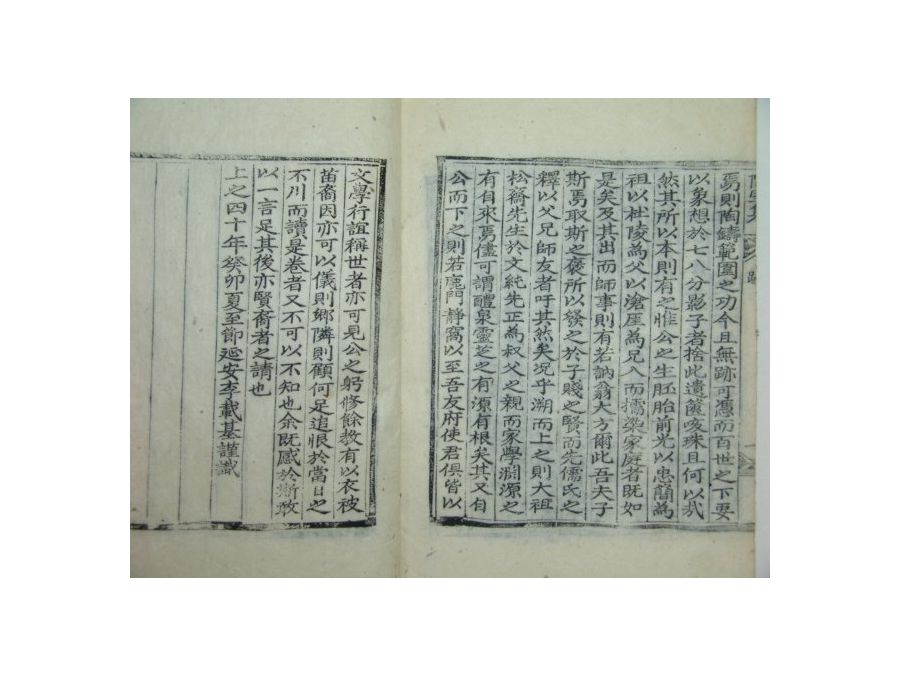 焉則陶鑄範圍之功今且無跡可憑而百世之下要
以象想於七八分影子者捨此遺篋唾珠且何以哉
然其所以本則有之惟公之生胚胎前光以忠簡為
祖以杜陵為父以滄厓為兄入而擩染家庭者既如
是矣及其出而師事則有若訥翁大方爾此吾夫子
斯焉取斯之褒所以發之於子賤之賢而先儒氏之
釋以父兄師友者吁其然矣況乎溯而上之則大祖
松齋先生於文純先正為叔父之親而家學淵源之
有自來焉儘可謂醴泉靈芝之有源有根矣其又自
公而下之則若鹿門靜窩以至吾友府使君俱皆以
文學行誼稱世者亦可見公之躬修餘教有以衣被
苗裔因亦可以儀則鄉隣則顧何足追恨於當日之
不川而讀是卷者又不可以不知也余既感於斯故
以一言足其後亦賢裔者之請也
上之四十年癸卯夏至節延安李載基謹識
跋